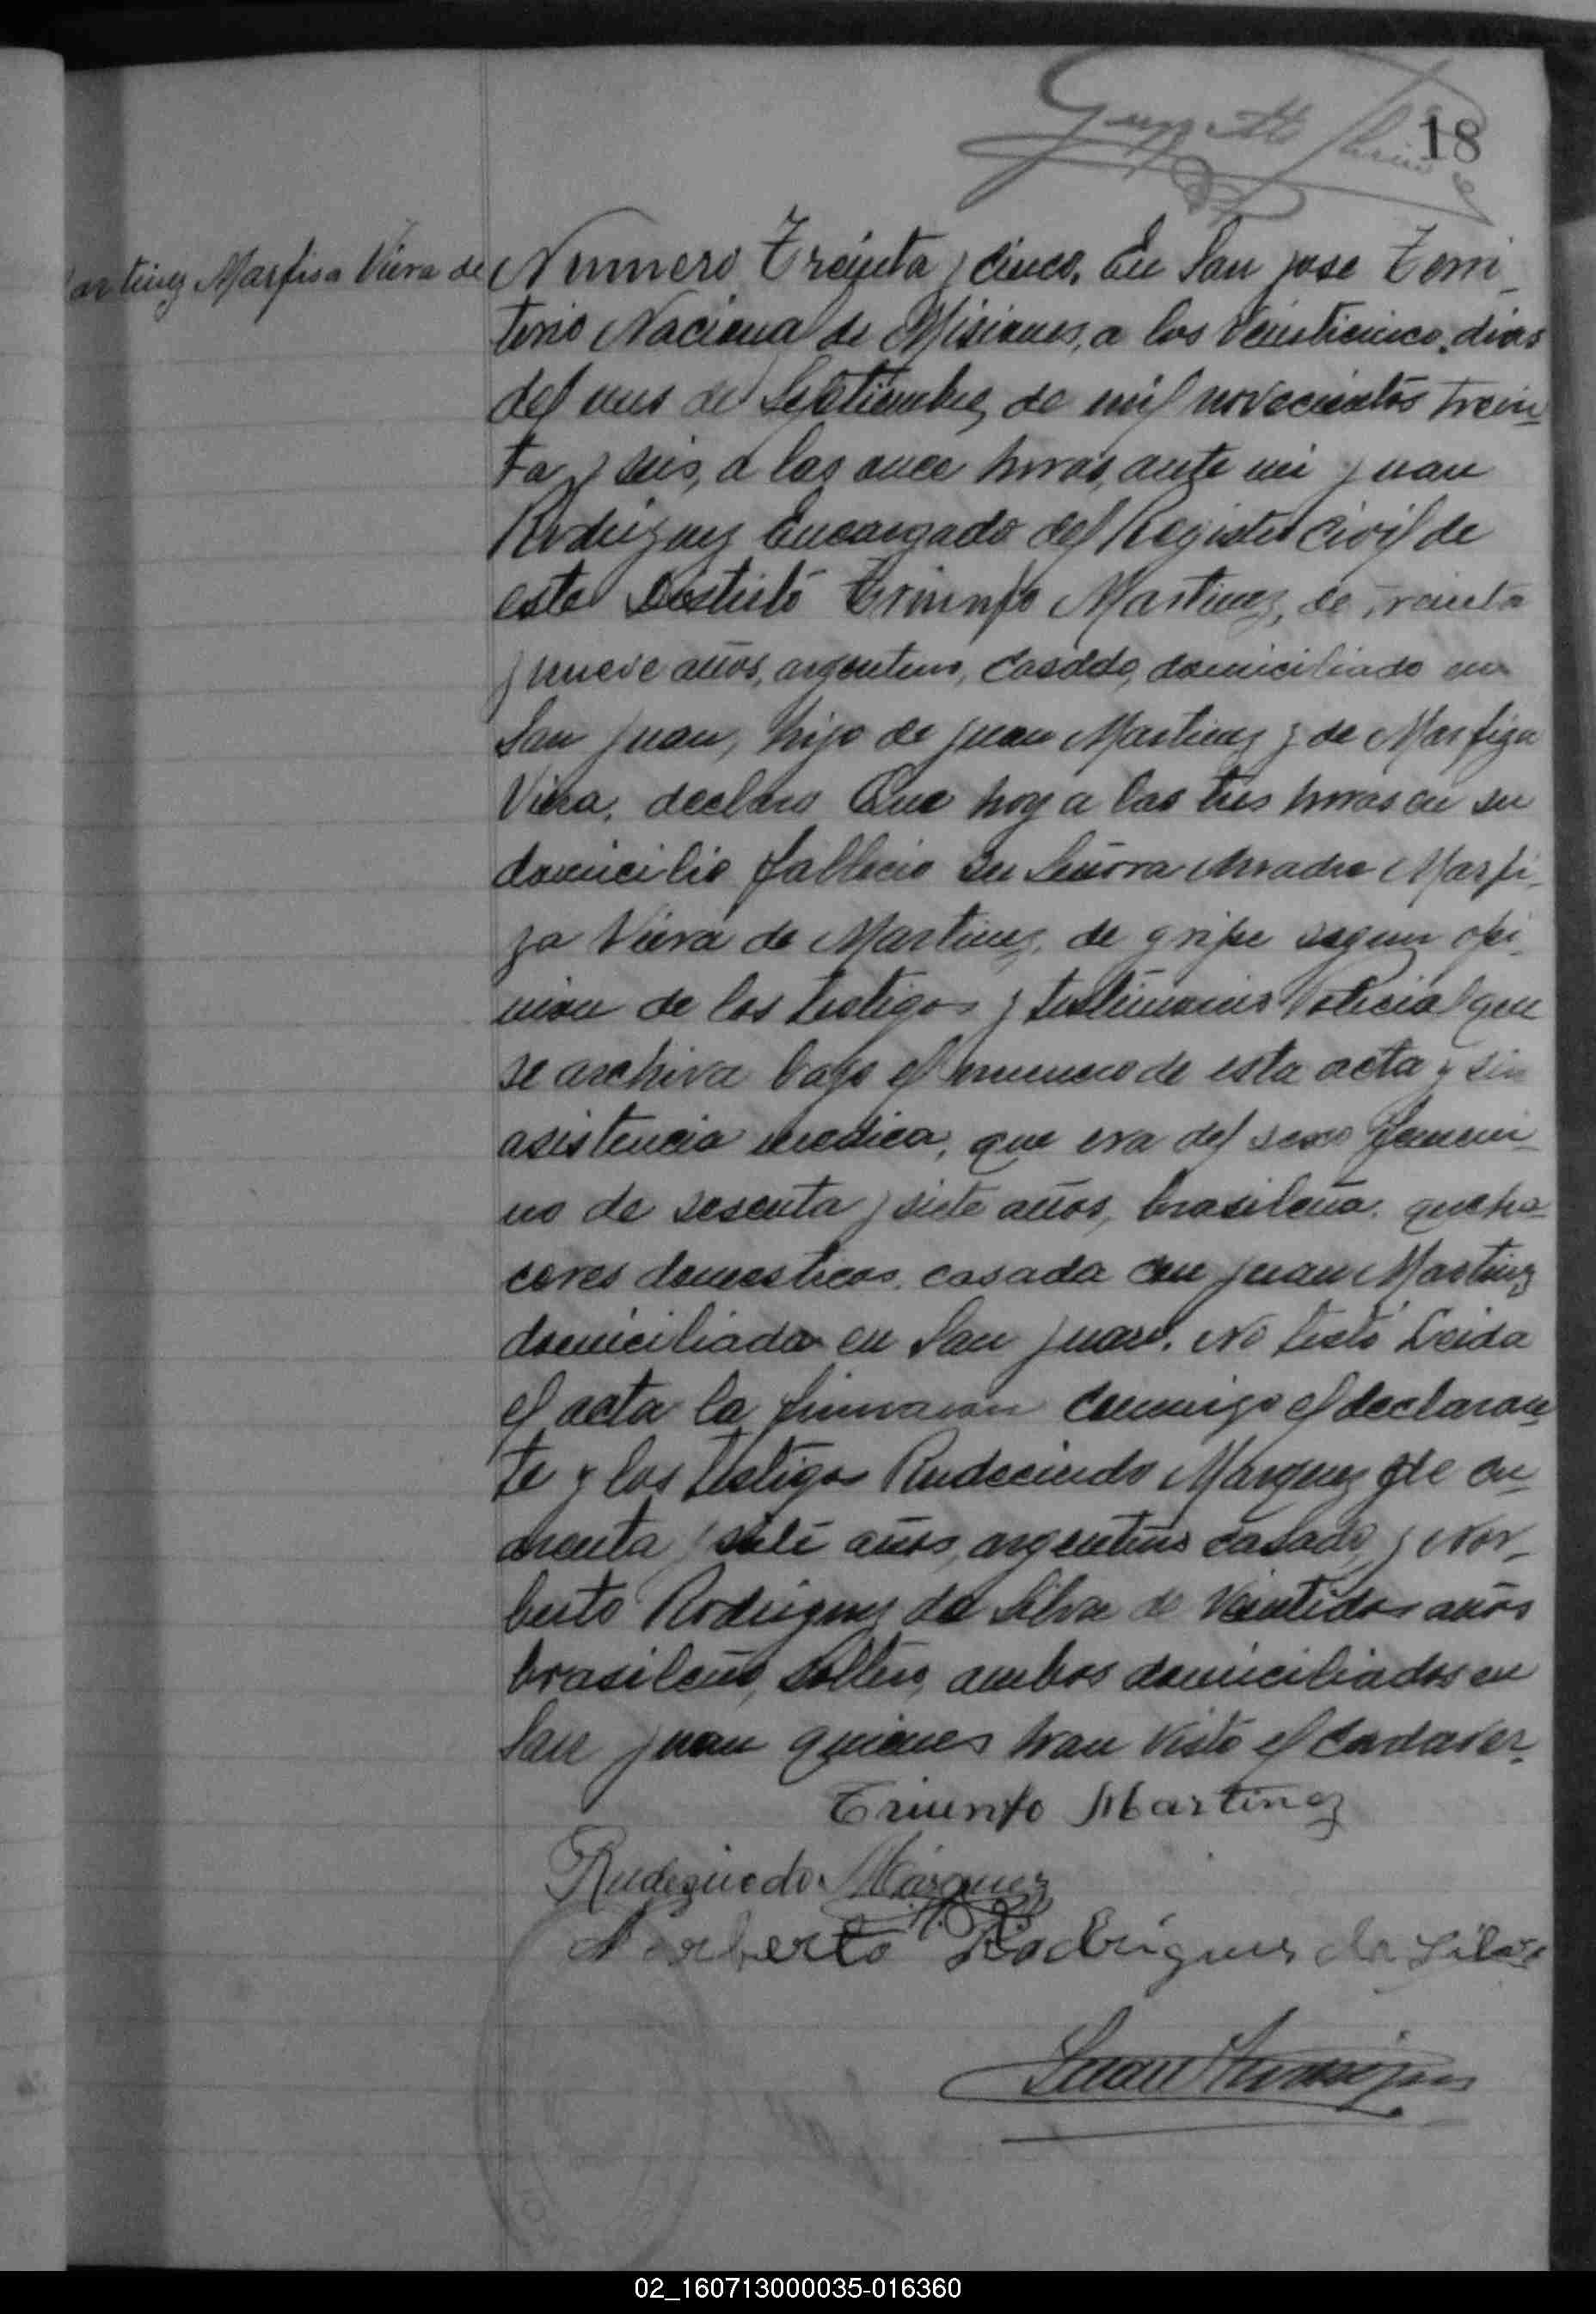 18
Martinez Marfisa Viera de
Numero Treinta y cinco. En San jose Terri-
torio Nacional de Misiones, a los Veinticinco dias
del mes de Septiembre de mil novecientos trein-
ta y seis, a las once horas, ante mi Juan
Rodriguez Encargado del Registro Civil de
este Distrito Triunfo Martinez, de treinta
y nueve años, argentino, casado, domiciliado en
San Juan, hijo de Juan Martinez y de Marfiza
Viera, declaro Que hoy a las tres horas en su
domicilio fallecio su Señora Madre Marfi-
za Viera de Martinez, de gripe segun opi-
nion de los testigos y testimonio Policial que
se archiva bajo el numero de esta acta y sin
asistencia medica, que era del sexo femeni-
no de sesenta y siete años, brasileña, queha-
ceres domesticos, casada con Juan Martinez
domiciliada en San Juan. No testó Leida
el acta la firmaron conmigo el declaran-
te y los testigos Rudecindo Marquez de cu-
arenta y siete años, argentino casado, y Nor-
berto Rodriguez da Silva de Veintidos años
brasileño, soltero, ambos domiciliados en
San Juan quienes han visto el cadaver.
Triunfo Martinez
Rudezindo Márquez
Norberto Rodrigues da Silva
02_160713000035-016360